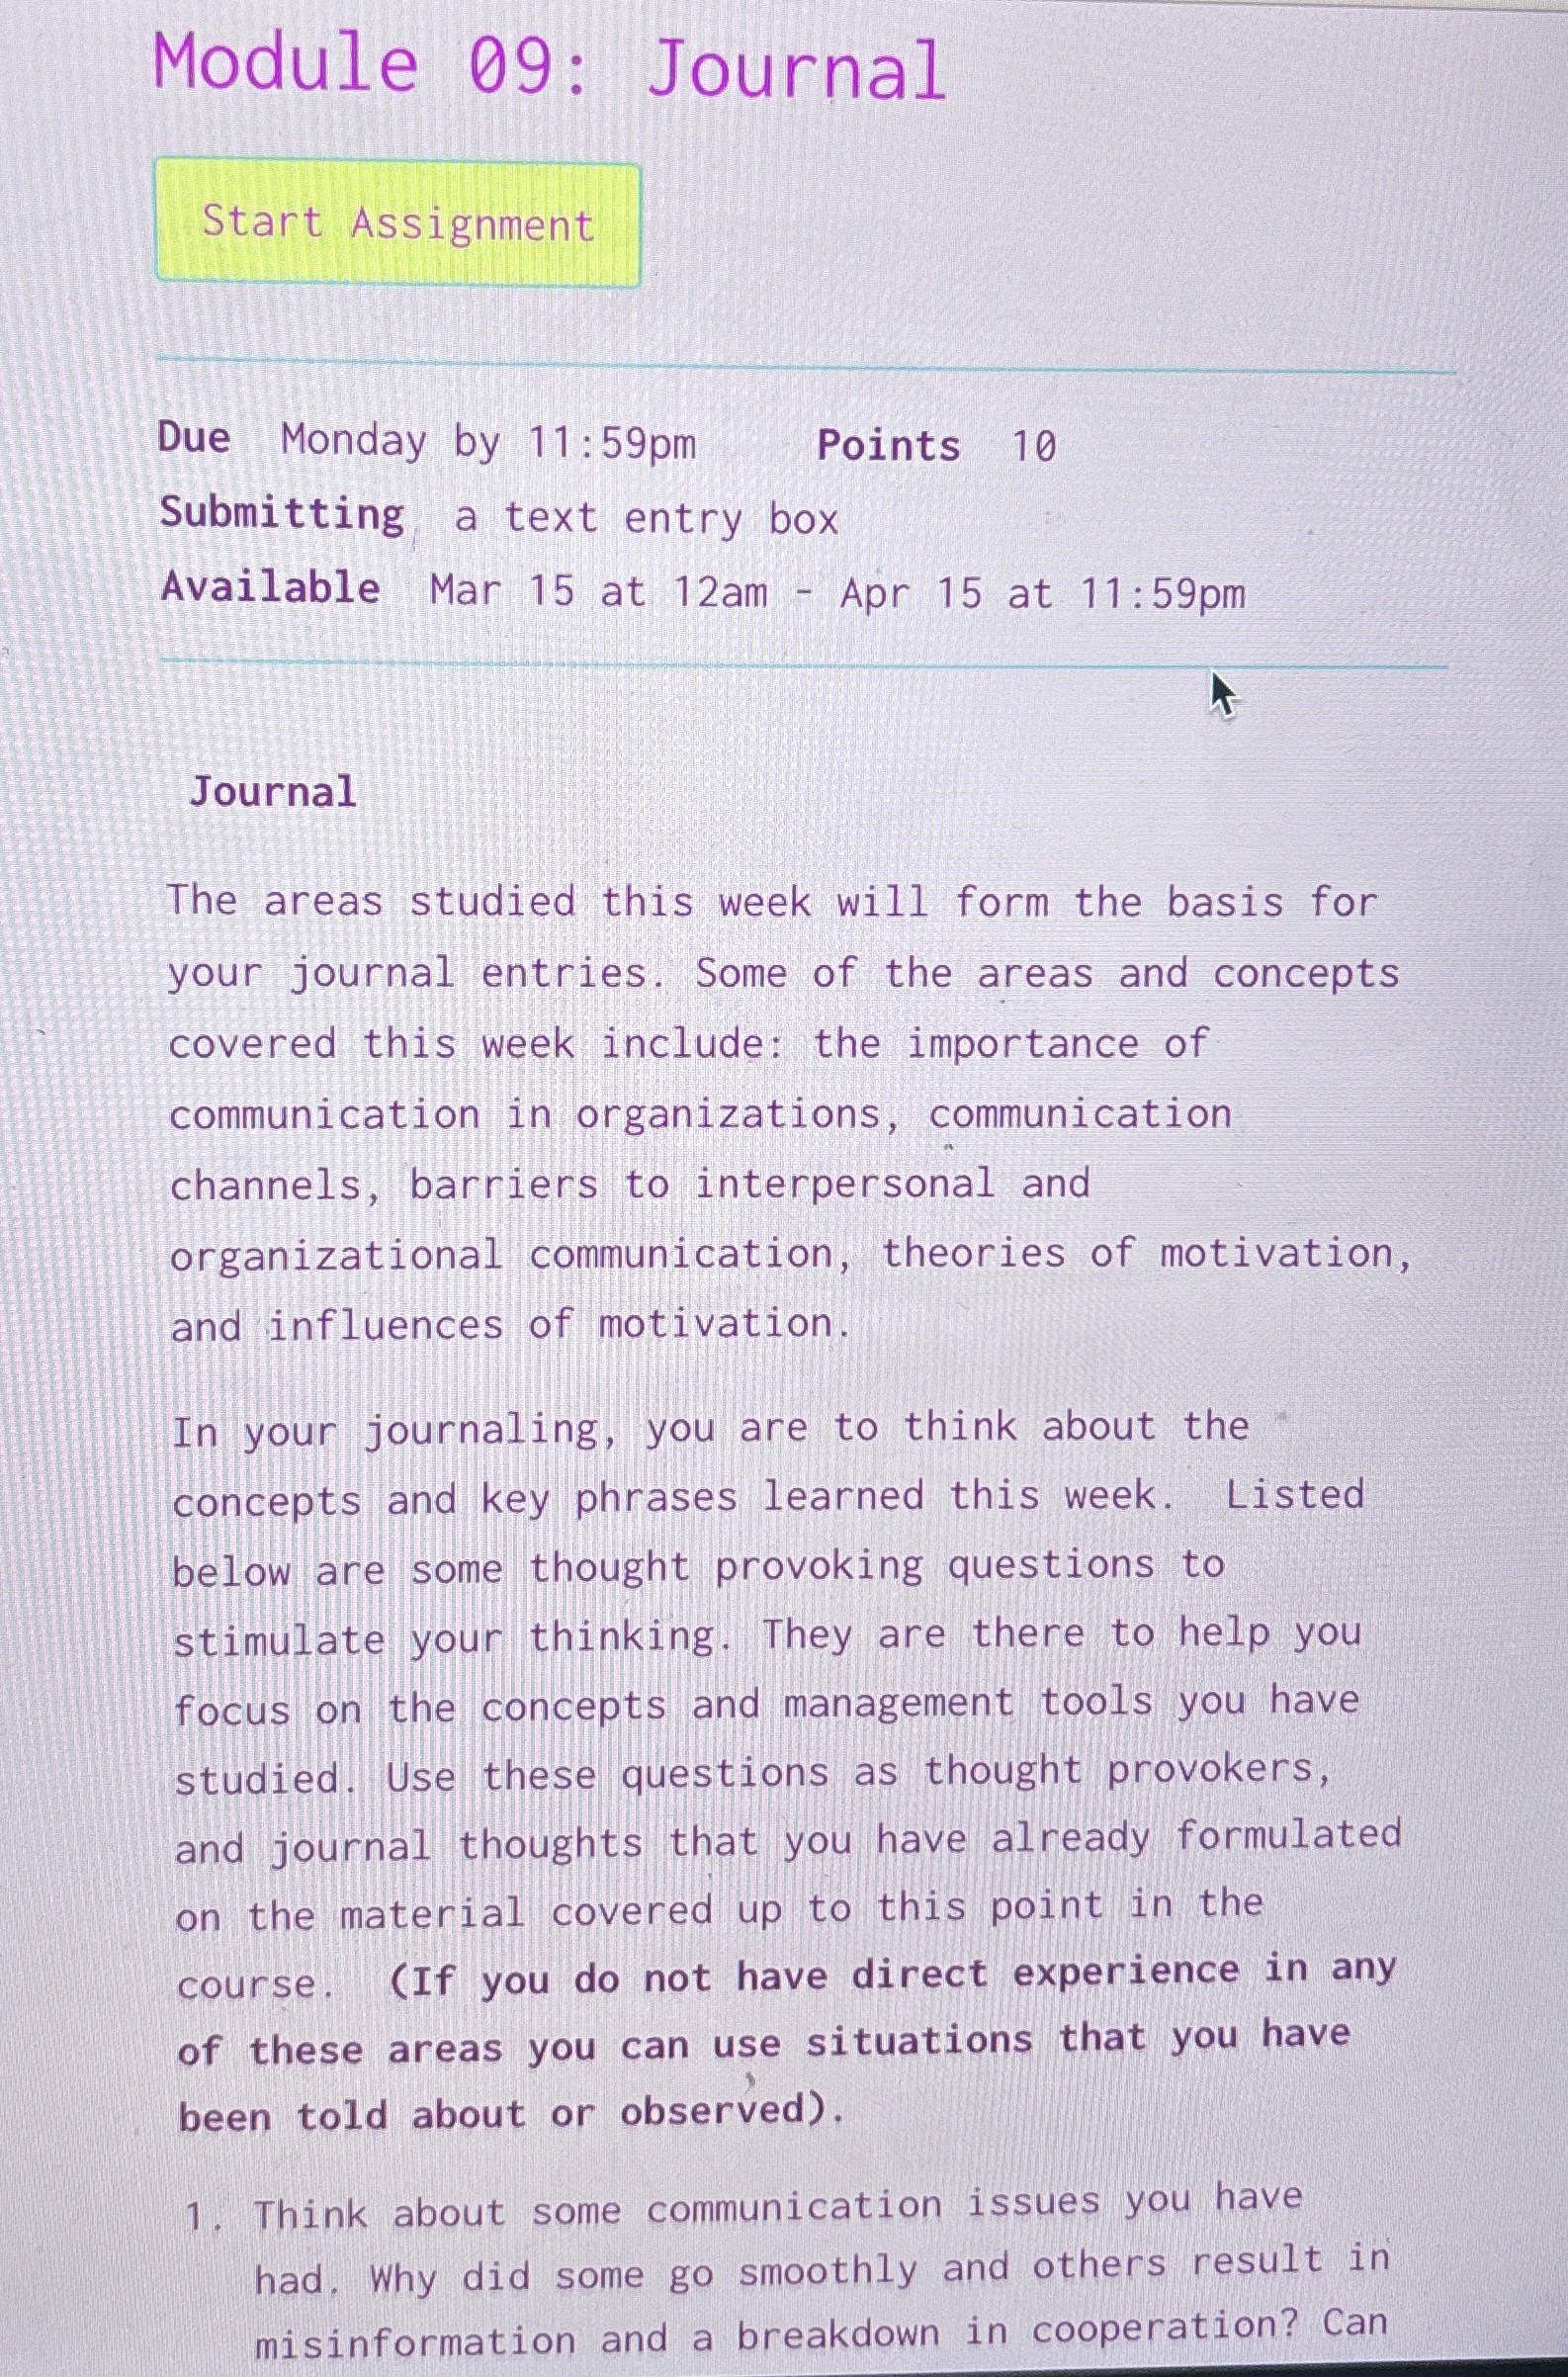 Module 09: Journal
Start Assignment
Due Monday by 11:59pm Points 10
Submitting a text entry box
Available Mar 15 at 12am - Apr 15 at 11:59pm
Journal
The areas studied this week will form the basis for
your journal entries. Some of the areas and concepts
covered this week include: the importance of
communication in organizations, communication
channels, barriers to interpersonal and
organizational communication, theories of motivation,
and influences of motivation.
In your journaling, you are to think about the
concepts and key phrases learned this week. Listed
below are some thought provoking questions to
stimulate your thinking. They are there to help you
focus on the concepts and management tools you have
studied. Use these questions as thought provokers,
and journal thoughts that you have already formulated
on the material covered up to this point in the
course. (If you do not have direct experience in any
of these areas you can use situations that you have
been told about or observed).
1. Think about some communication issues you have
had. Why did some go smoothly and others result in
misinformation and a breakdown in cooperation? Can